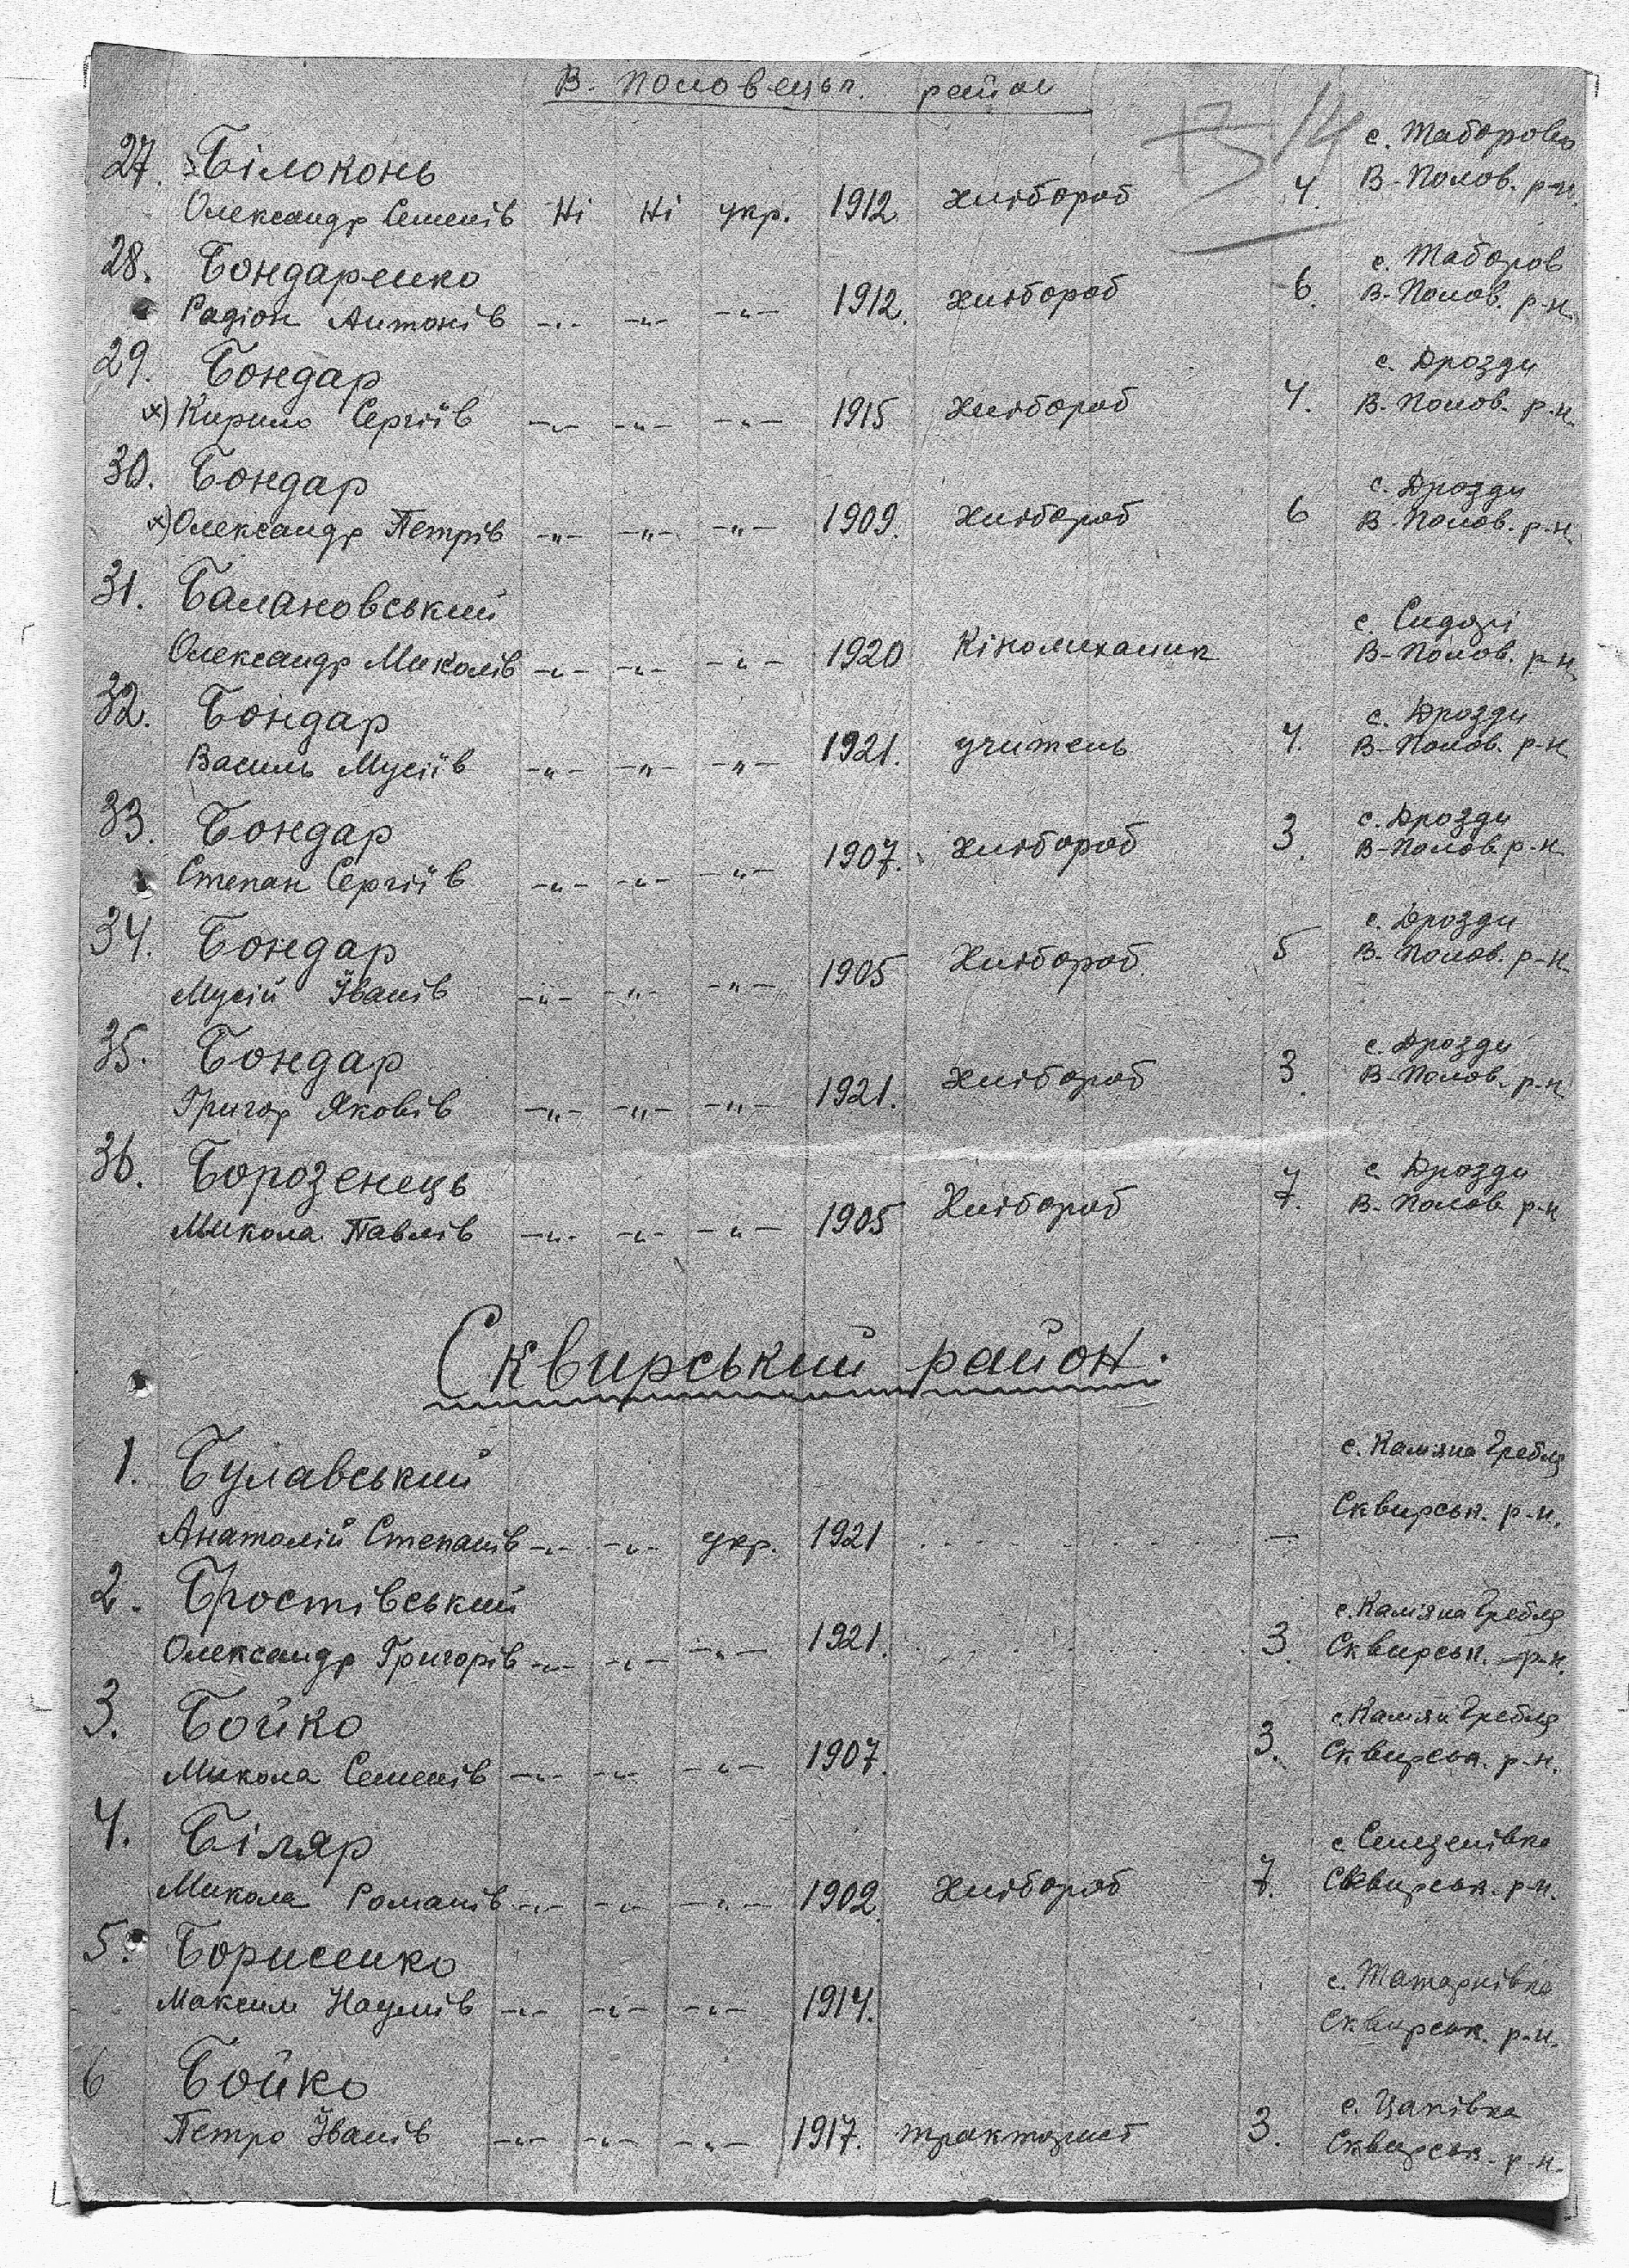 В. Половецьк. район
Б 14
27. Білоконь с. Таборово
Олександр Семенів Ні Ні укр. 1912. хлібороб 4. В-Полов. р-н.
28. Бондаренко с. Таборов
Радіон Антонів -"- -"- -"- 1912. хлібороб 6. В-Полов. р-н.
29. Бондар с. Дрозди
х) Кирило Сергіїв -"- -"- -"- 1915 хлібороб 4. В-Полов. р-н.
30. Бондар с. Дрозди
х) Олександр Петрів -"- -"- -"- 1909. хлібороб 6 В-Полов. р-н.
31. Балановський с. Сидорі
Олександр Миколів -"- -"- -"- 1920 Кіномиханик В-Полов. р-н.
32. Бондар с. Дрозди
Василь Мусіїв -"- -"- -"- 1921. учитель 4. В-Полов. р-н
33. Бондар с. Дрозди
Степан Сергіїв -"- -"- -"- 1907. хлібороб 3. В-Полов. р-н.
34. Бондар с. Дрозди
Мусій Іванів -"- -"- -"- 1905 Хлібороб 5 В-Полов. р-н.
35. Бондар с. Дрозди
Григор Яковів -"- -"- -"- 1921. Хлібороб 3. В-Полов. р-н
36. Борозенець с. Дрозди
Микола Павлів -"- -"- -"- 1905 Хлібороб 7. В-Полов. р-н
Сквирський район.
1. Булавський с. Камяна Гребля
Анатолій Степанів -"- -"- укр. 1921 — Сквирськ. р-н.
2. Бростівський с. Камяна Гребля
Олександр Григорів -"- -"- -"- 1921. 3. Сквирськ. р-н.
3. Бойко с. Камян Гребля
Микола Семенів -"- -"- -"- 1907. 3. Сквирськ. р-н.
4. Біляр с Селезенівка
Микола Романів -"- -"- -"- 1902. Хлібороб 7. Сквирськ. р-н.
5. Борисенко с. Татарнівка
Максим Наумів -"- -"- -"- 1914. Сквирськ. р-н.
6 Бойко с. Цапівка
Петро Іванів -"- -"- -"- 1917. тракторист 3. Сквирськ. р-н.